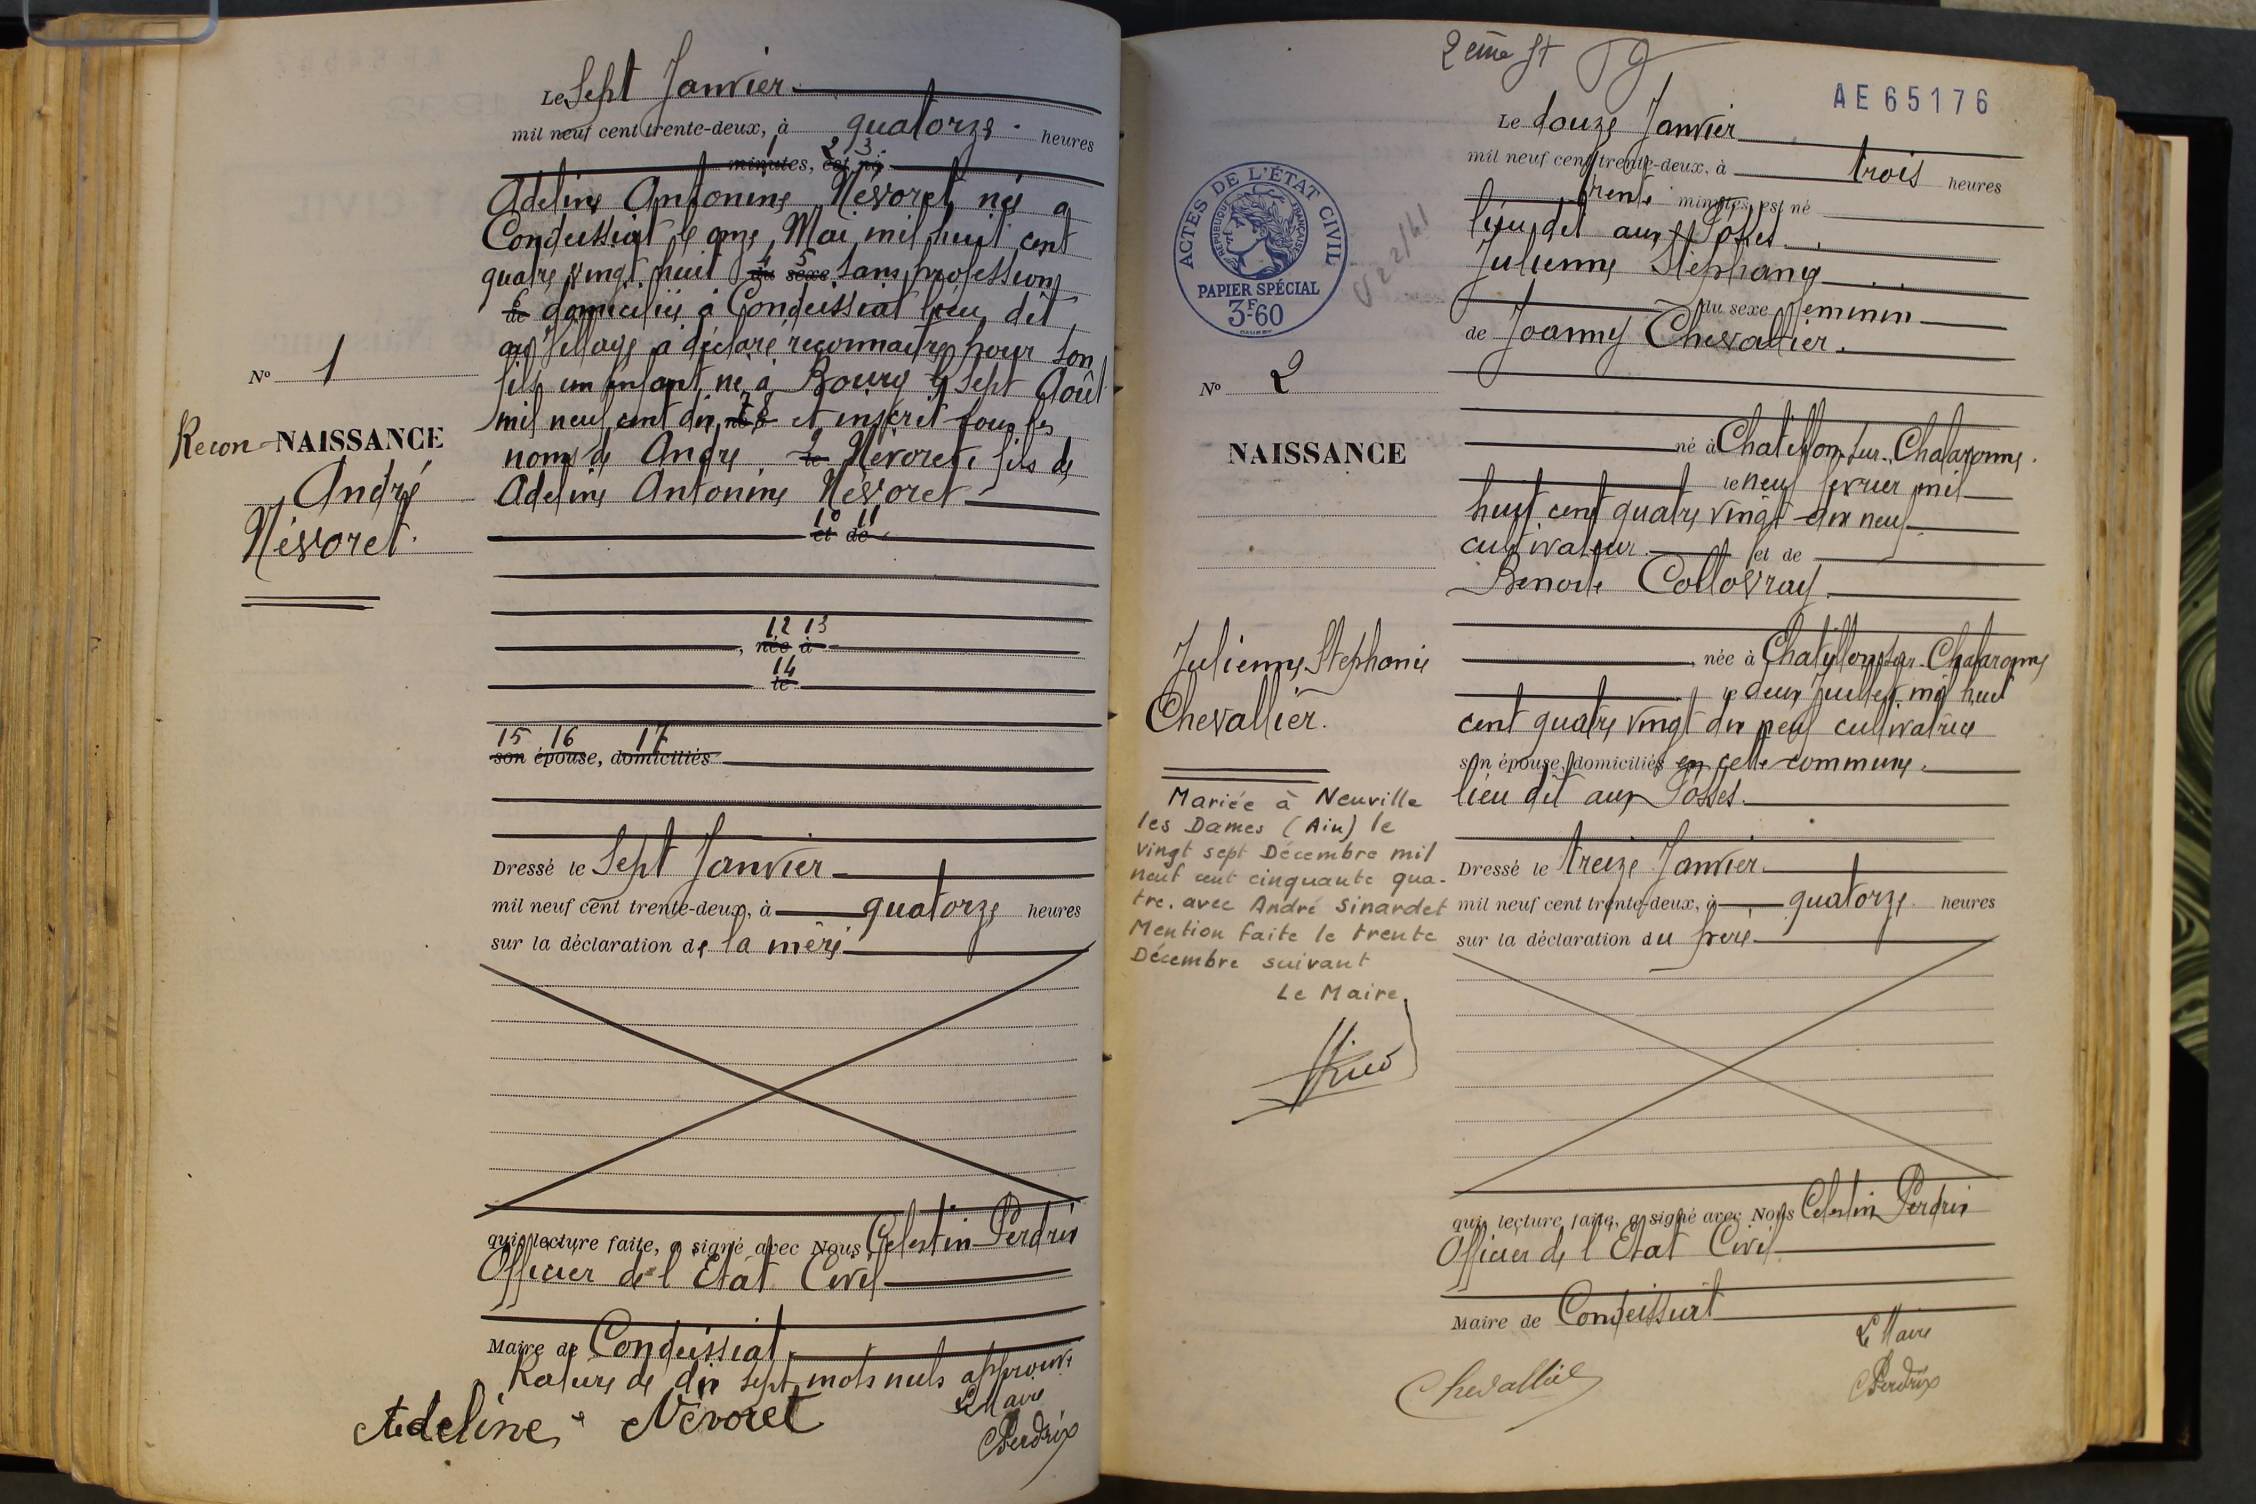 Le Sept Janvier
mil neuf cent trente-deux, à quatorze heures
1 2 3
minutes, est né
Adeline Antonine Névoret née a
Condeissiat le onze Mai mil huit cent
quatre vingt huit 4 du 5 sexe sans profession
6 de domiciliée à Condeissiat lieu dit
a déclaré reconnaitre pour son
fils un enfant né à Bourg le sept Août
mil neuf cent dix 7 8 et inscrit sous les
noms de André 9 le Névoret, fils de
Adeline Antonine Névoret
10 11
et de
12 13
, née à
14
le
15 16 17
son épouse, domiciliés
Dressé le Sept Janvier
mil neuf cent trente-deux, à quatorze heures
sur la déclaration de la mère
qui, lecture faite, a signé avec Nous Celestin Perdrix
Officier de l'Etat Civil
Maire de Condeissiat
Rature de dix sept mots nuls approuvé
Le Maire
Adeline Névoret
CPerdrix
N° 1
Recon-NAISSANCE
André
Névoret.
2eme st
AE65176
Le douze Janvier
mil neuf cent trente-deux, à trois heures
trente minutes, est né
lieu dit aux Fosses
Julienne Stéphanie
du sexe feminin
de Joanny Chevallier.
né à Chatillon-sur-Chalaronne.
le neuf fevrier mil
huit cent quatre vingt dix neuf
cultivateur et de
Benoite Collovray
née à Chatillon-sur-Chalaronne
le deux Juillet mil huit
cent quatre vingt dix neuf cultivatrice
son épouse, domiciliés en cette commune.
lieu dit aux Fosses
Dressé le treize Janvier
mil neuf cent trente-deux, à quatorze heures
sur la déclaration du pere
qui, lecture faite, a signé avec Nous Celestin Perdrix
Officier de l'Etat Civil
Maire de Condeissiat
Le Maire
Chevallier
CPerdrix
ACTES DE L'ÉTAT CIVIL
RÉPUBLIQUE FRANÇAISE
PAPIER SPÉCIAL
3F60
N° 2
NAISSANCE
Julienne Stephanie
Chevallier.
Mariée à Neuville
les Dames (Ain) le
vingt sept Décembre mil
neuf cent cinquante qua-
tre. avec André Sinardet
Mention faite le trente
Décembre suivant
Le Maire,